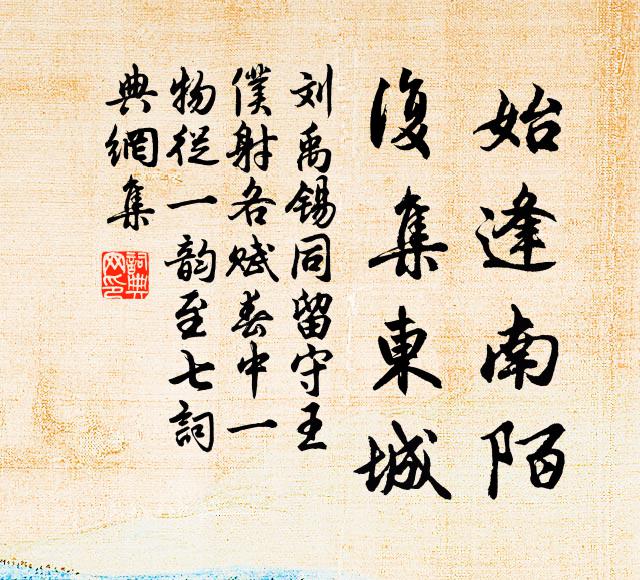 始逢南陌
復集東城
刘禹锡同留守王
僕射各赋春中一
物從一韵至七詞
典網集
詞典網印